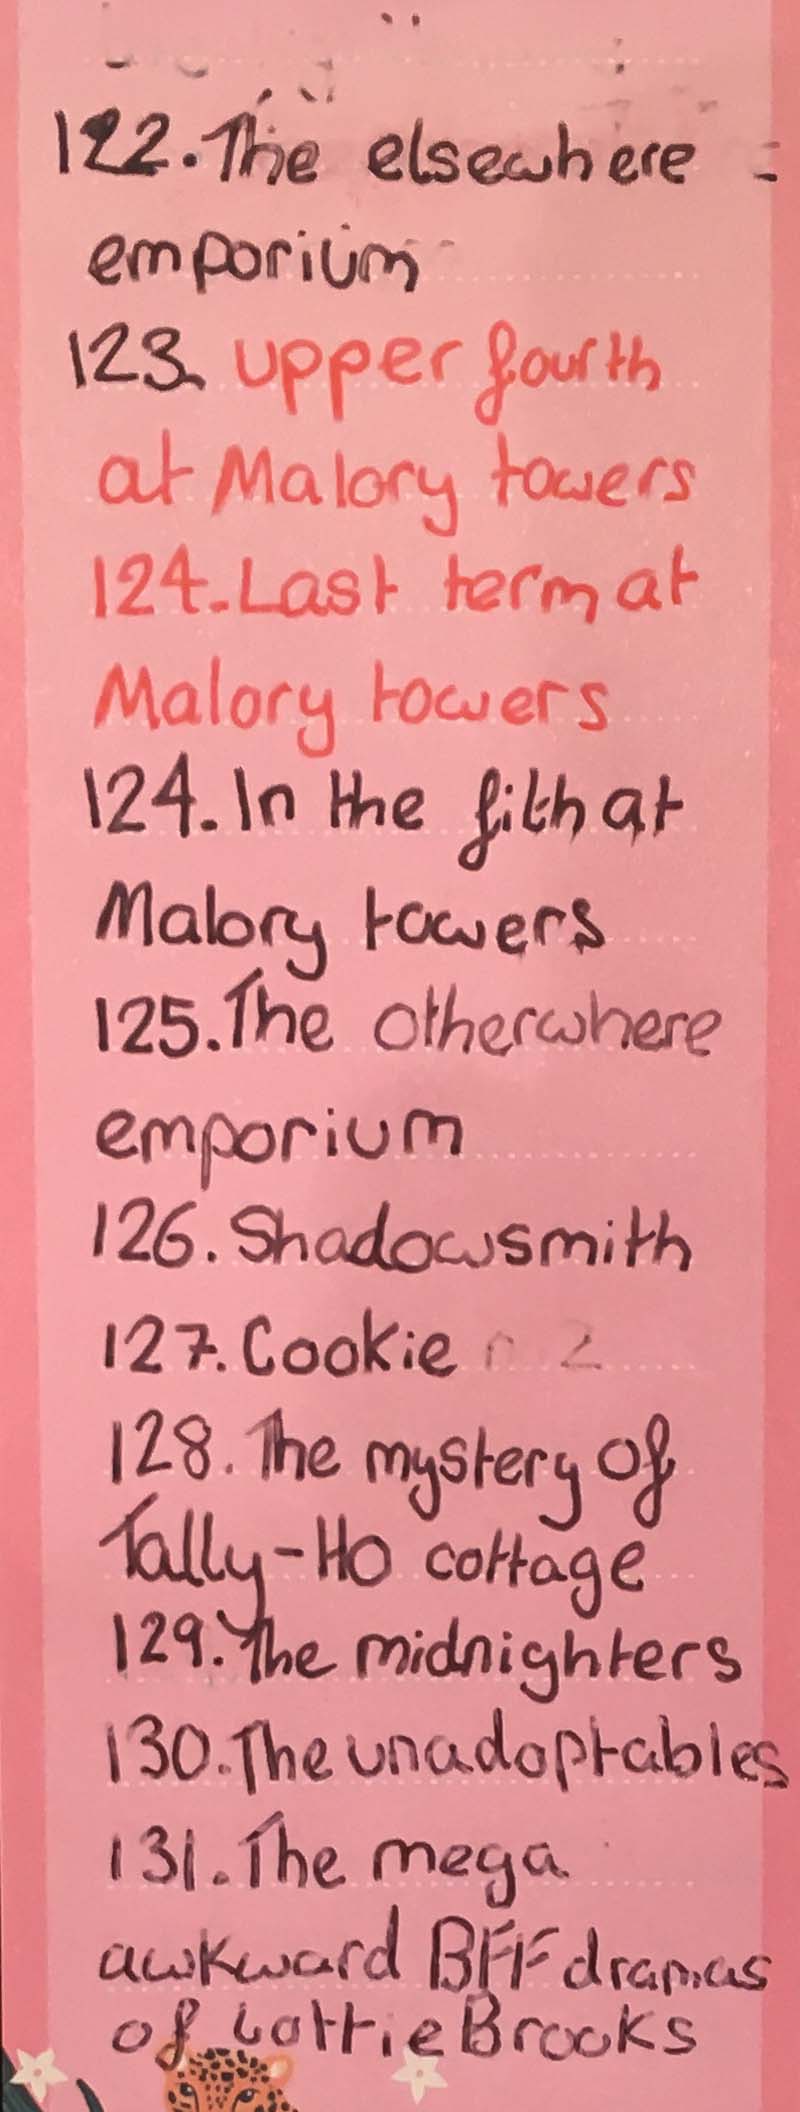 122. The elsewhere
emporium
123. upper fourth
at Malory towers
124. Last term at
Malory towers
124. In the fifth at
Malory towers
125. The otherwhere
emporium
126. Shadowsmith
127. Cookie
128. The mystery of
Tally-Ho cottage
129. The midnighters
130. The unadoptables
131. The mega
awkward BFF dramas
of Lottie Brooks